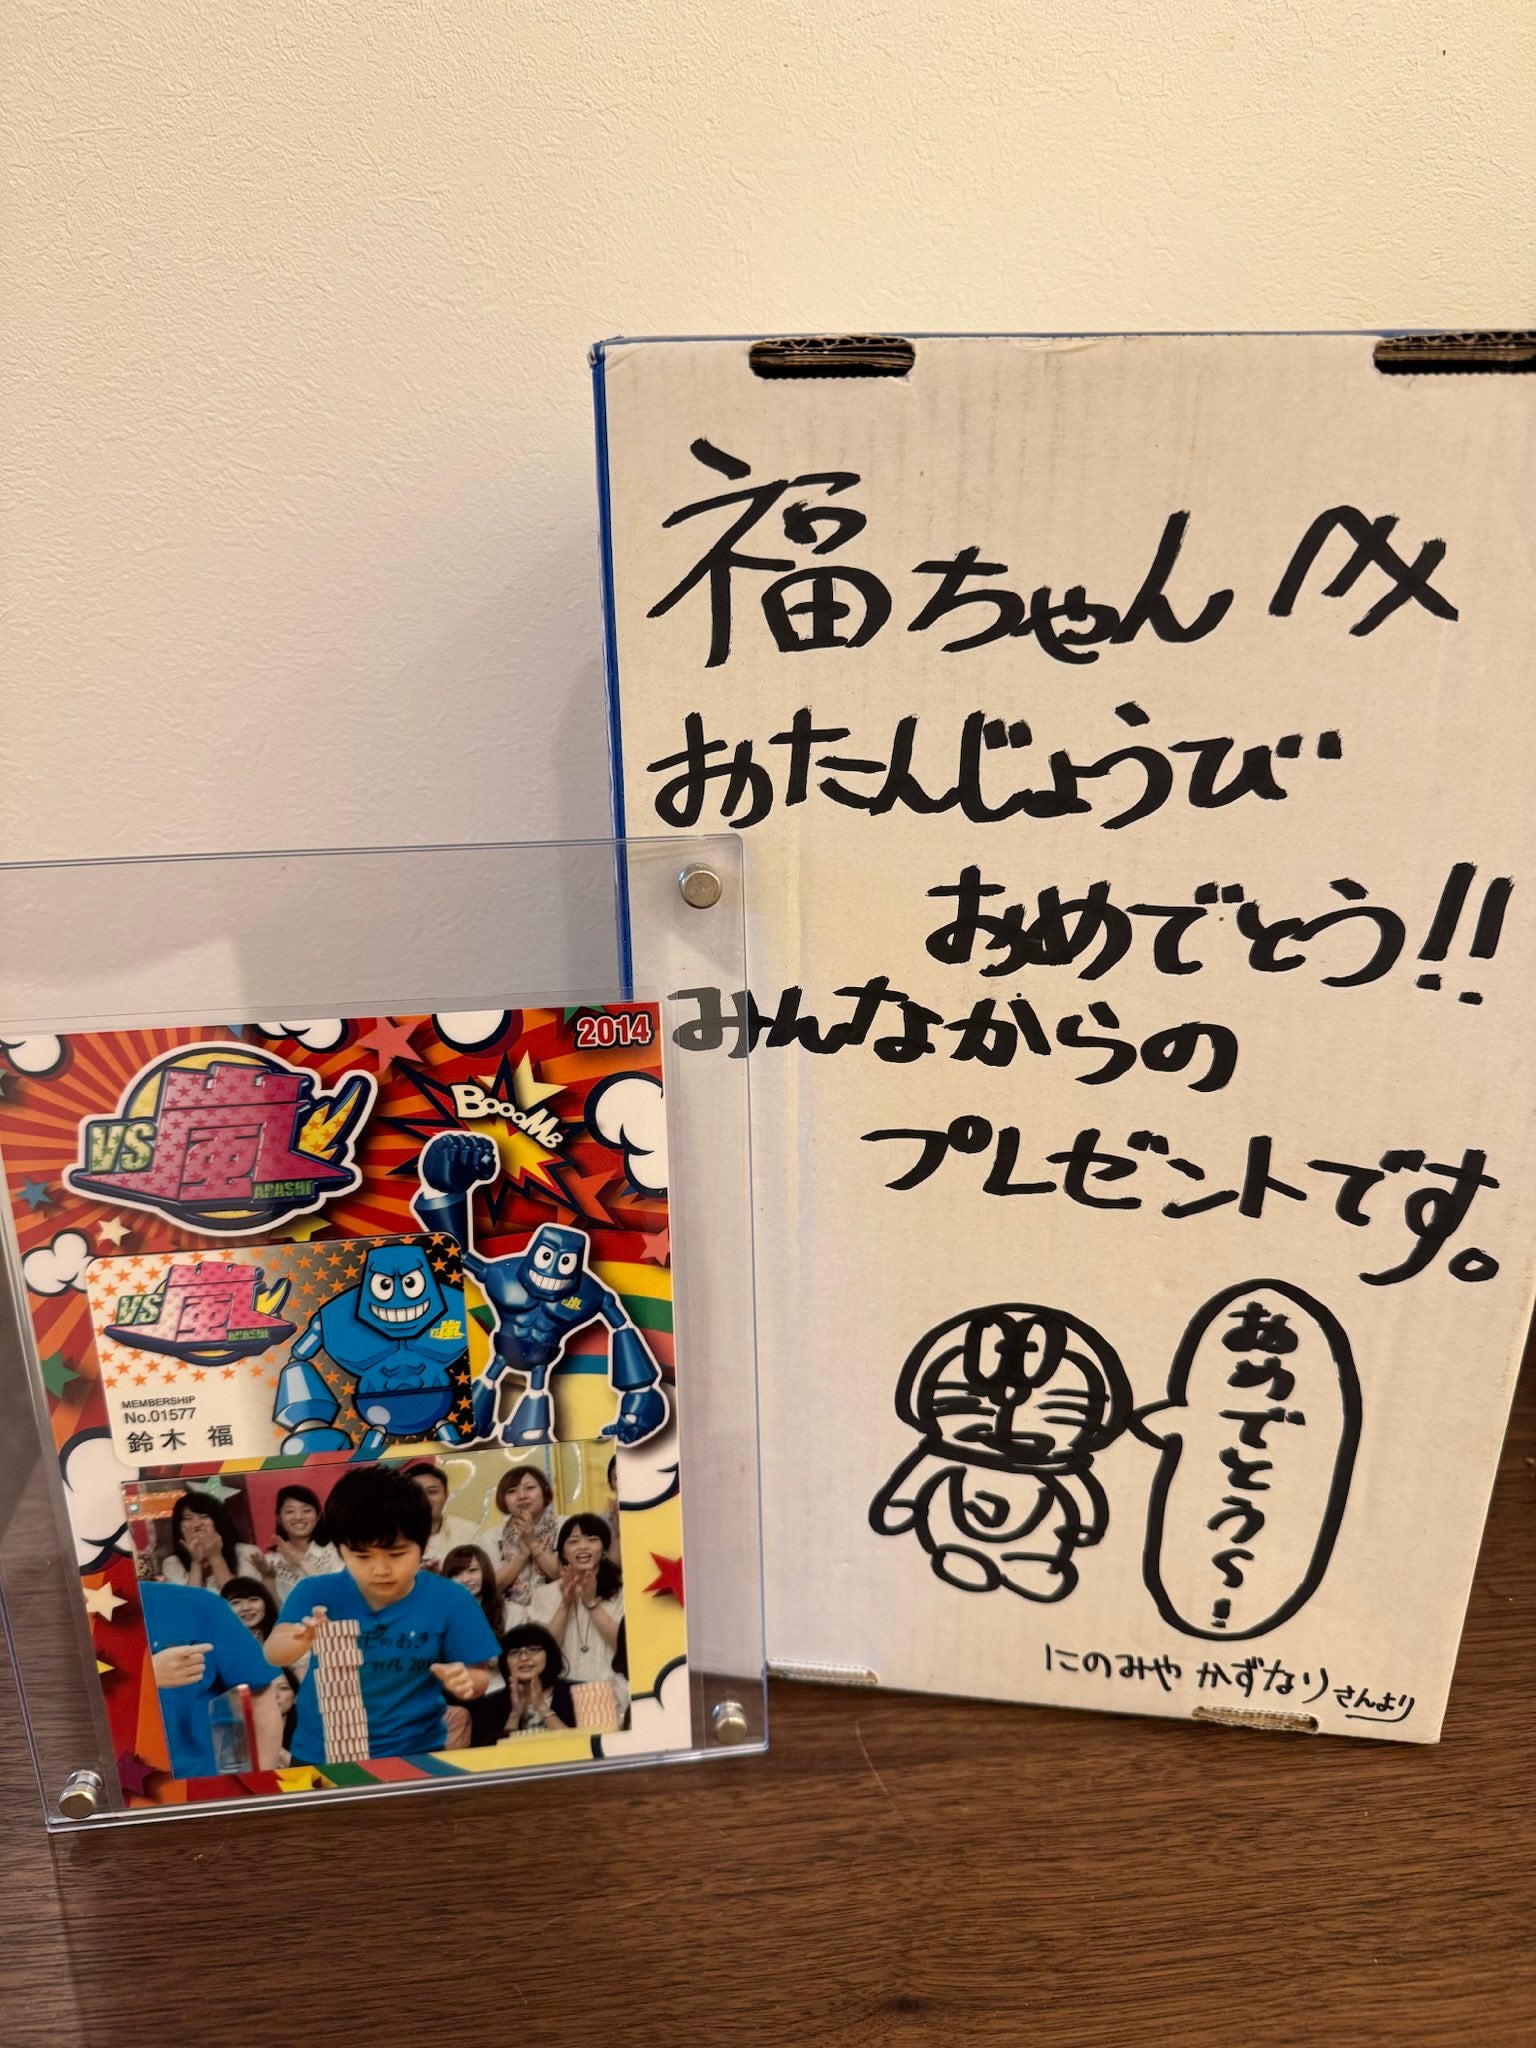 福ちゃんへ
おたんじょうび
おめでとう!!
みんなからの
プレゼントです。
おめでとう〜!
にのみや かずなりさんより
2014
VS嵐
ARASHI
BOOOMB
VS嵐
ARASHI
VS嵐
MEMBERSHIP
No.01577
鈴木 福
のおきて